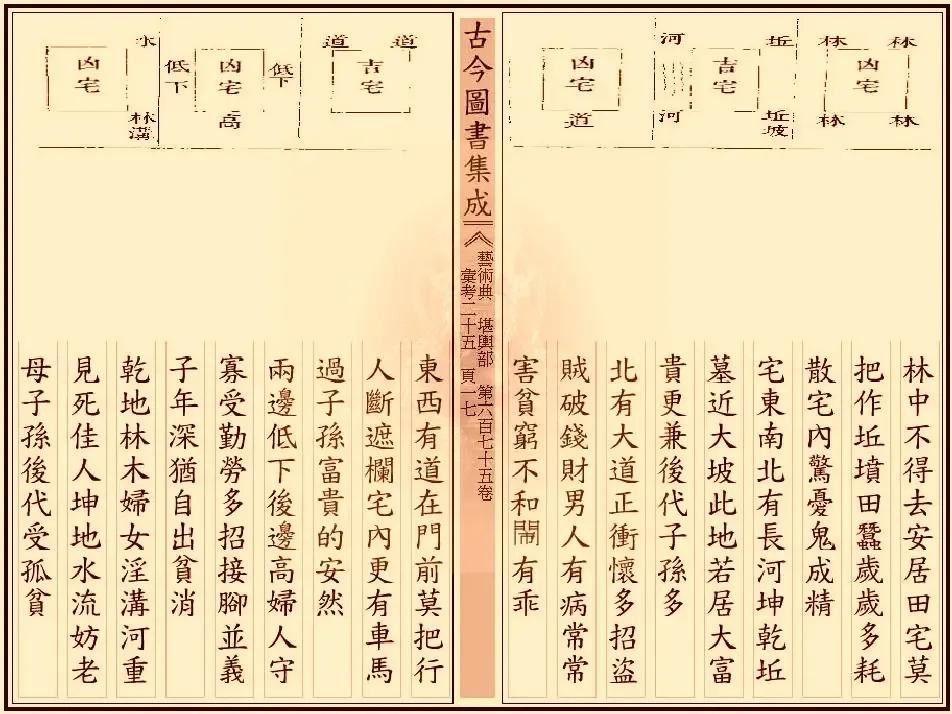 林 林
凶宅
林 林
坵 河
吉宅
坵坡 河
凶宅
道
林中不得去安居田宅莫
把作坵墳田蠶歲歲多耗
散宅內驚憂鬼成精
宅東南北有長河坤乾坵
墓近大坡此地若居大富
貴更兼後代子孫多
北有大道正衝懷多招盜
賊破錢財男人有病常常
害貧窮不和鬧有乖
古今圖書集成
藝術典 堪輿部 第六百七十五卷
彙考二十五 頁一七
道 道
吉宅
低下 低下
凶宅
高
水
凶宅
林溝
東西有道在門前莫把行
人斷遮欄宅內更有車馬
過子孫富貴的安然
兩邊低下後邊高婦人守
寡受勤勞多招接腳並義
子年深猶自出貧消
乾地林木婦女淫溝河重
見死佳人坤地水流妨老
母子孫後代受孤貧